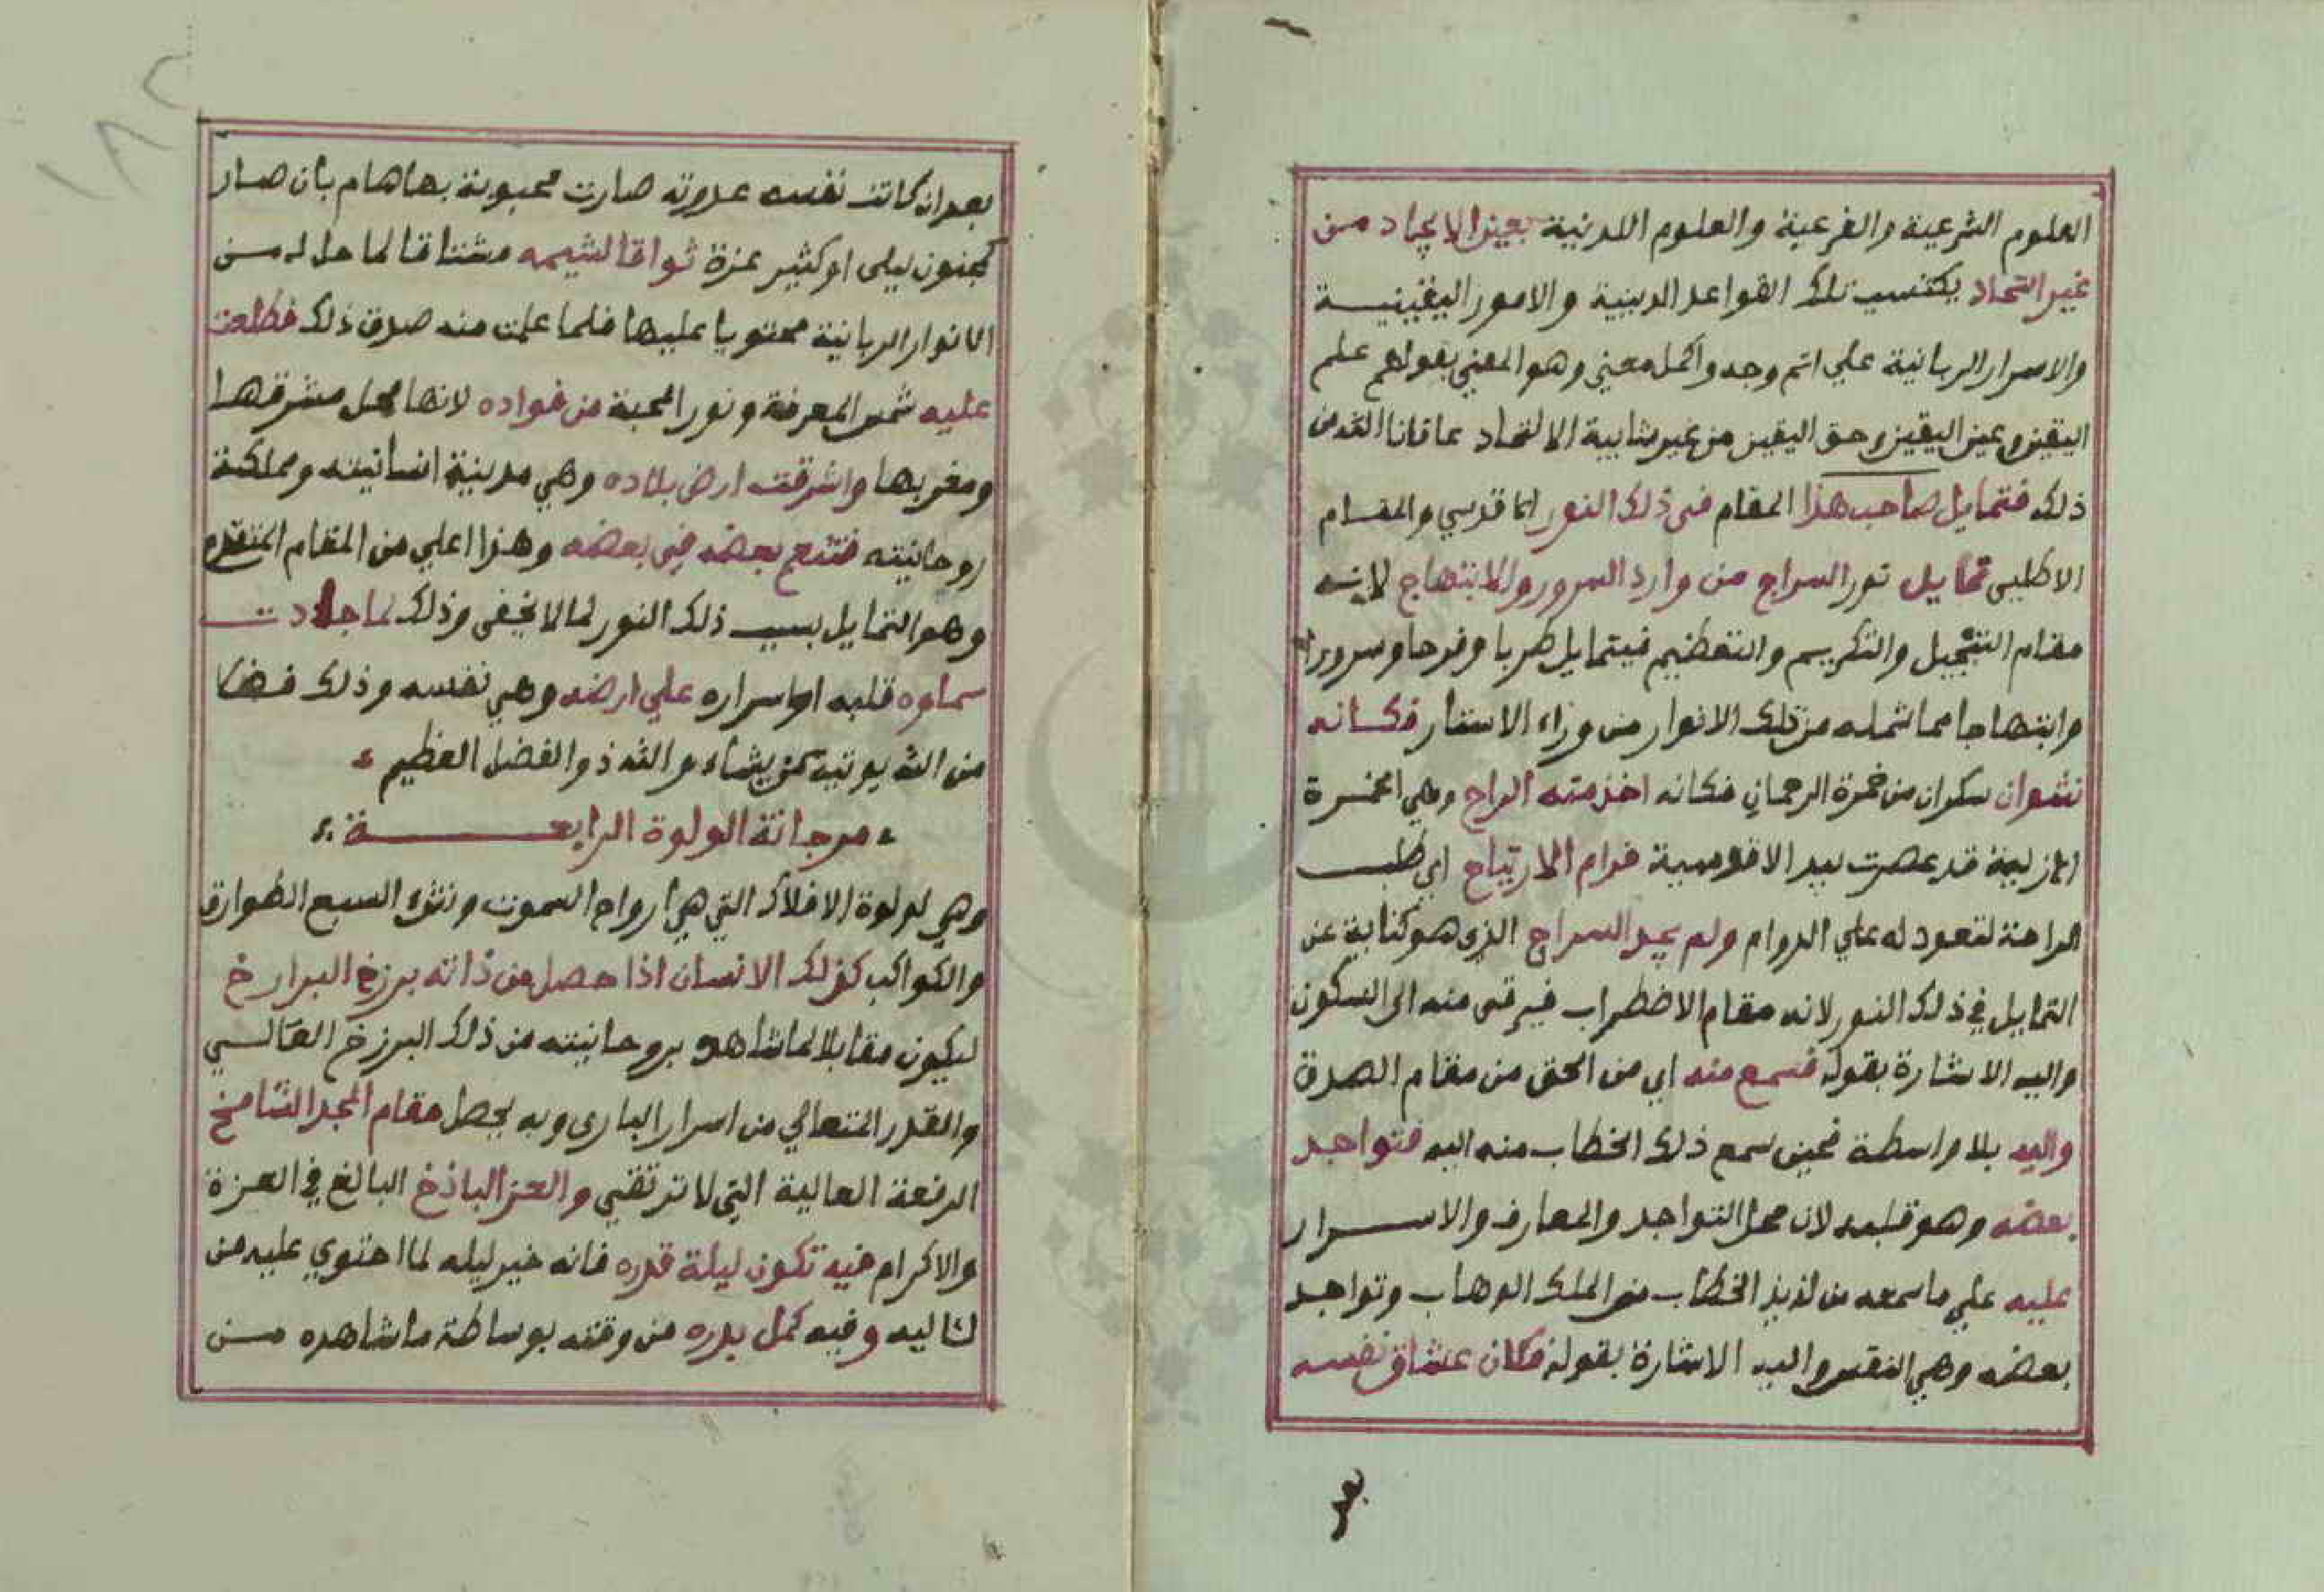 العلوم الشرعية والفرعية والعلوم اللدنية بعين الايجاد من
غير اتحاد يكتسب تلك القواعد الدينية والامور اليقينية
والاسرار الربانية علي اتم وجه واكمل معني وهو المعني بقولهم علم
اليقين وعين اليقين وحق اليقين من غير شايبة الالتحاد عاقانا الله من
ذلك فتمايل صاحب هذا المقام في ذلك النور القدسي والمقام
الاطيبي تمايل نور السراج من وارد السرور والابتهاج لانه
مقام التبجيل والتكريم والتعظيم فيتمايل طربا وفرحا وسرورا
وابتهاجا مما شمله من تلك الانوار من وراء الاستار فكانه
نشوان سكران من خمرة الرحمان فكانه اخذ منه الراح وهي الخمرة
الازلية قد عصرت بيد الاقدسية فرام الارتياح اي طلب
الراحة لتعود له علي الدوام ولم يجد السراج الذي هو كناية عن
التمايل في ذلك النور لانه مقام الاضطراب فيرقي منه الى السكون
واليه الاشارة بقوله فسمع منه اي من الحق من مقام الصدق
واليه بلا واسطة فحين سمع ذلك الخطاب منه اليه فتواجد
بعضه وهو قلبه لان محل التواجد والمعارف والاسرار
عليه علي ما سمعه من لذيذ الخطاب من الملك الوهاب وتواجد
بعضه وهي النفس واليه الاشارة بقوله فكان عشاق نفسه
بعد
١٨٢
بعد ان كانت نفسه عدوته صارت محبوبة بها هام بان صار
كمجنون ليلى او كثير عزة تواقا لشيمه مشتاقا لما حل له من
الانوار الربانية محتويا عليها فلما علمت منه صدق ذلك فطلعت
عليه شمس المعرفة ونور المحبة من فواده لانها محل مشرقها
ومغربها واشرقت ارض بلاده وهي مدينة انسانيته ومملكة
روحانيته فتنعم بعضه في بعضه وهذا اعلي من المقام المتقدم
وهو التمايل بسبب ذلك النور لما لا يخفى وذلك لما جادت
سماوه قلبه او اسراره علي ارضه وهي نفسه وذلك فضلا
من الله يوتيه من يشاء والله ذو الفضل العظيم
مرجانة الولوة الرابعة
وهي لولوة الافلاك التي هي ارواح السموت ونشء السبع الطوارق
والكواكب كذلك الانسان اذا حصل من ذاته برزخ البرارخ
ليكون مقابلا لما شاهد بروحانيته من ذلك البرزخ العالي
والقدر المتعالي من اسرار الباري وبه يحصل مقام المجد الشامخ
الرفعة العالية التي لا ترتقي والعز الباذخ البالغ في العزة
والاكرام فيه تكون ليلة قدره فانه خير ليله لما احتوي عليه من
لثاليه وفيه كمل بدره من وقته بوساطة ما شاهده من